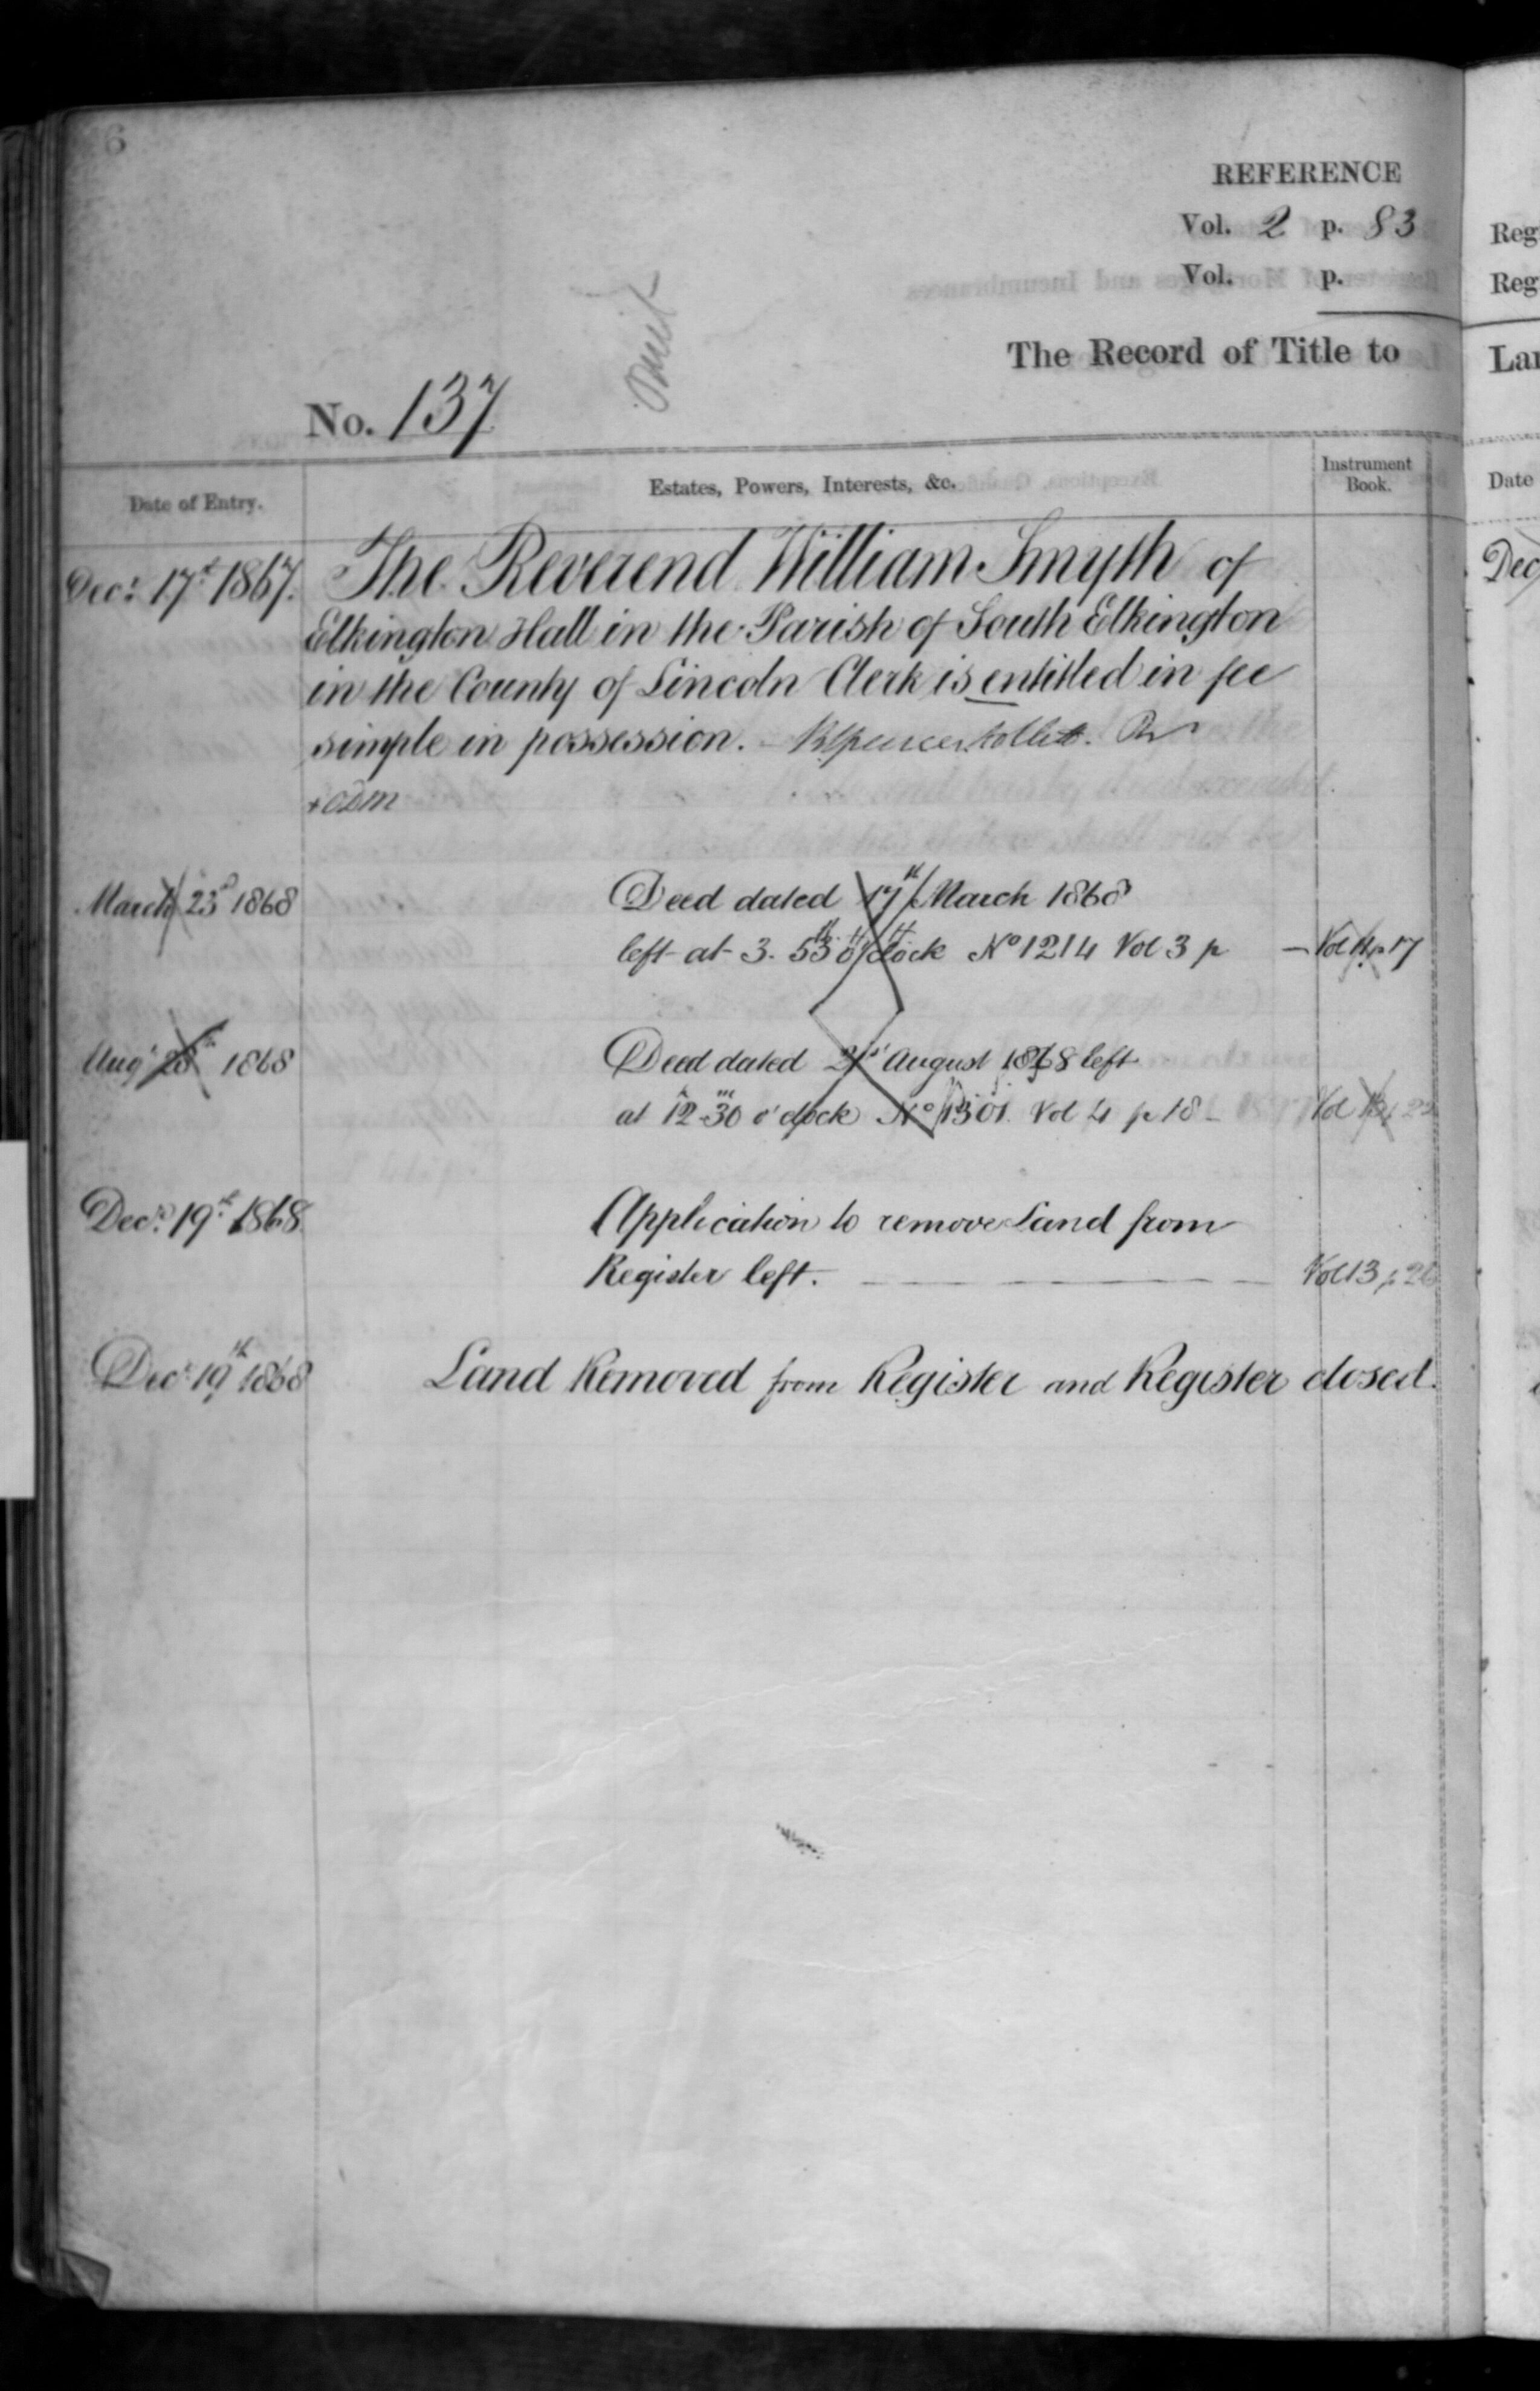 6
REFERENCE
Vol. 2 p. 83
Vol. p.
The Record of Title to
No. 137
Omit
Date of Entry.
Estates, Powers, Interests, &c.
Instrument Book.
Decr. 17th 1867. The Reverend William Smyth of
Elkington Hall in the Parish of South Elkington
in the County of Lincoln Clerk is entitled in fee
simple in possession.
March 23d 1868 Deed dated 17th March 1868
left at 3. 53 o'clock No 1214 Vol 3 p — Vol 11 p 17
Augt 28th 1868 Deed dated 21st August 1868 left
at 12-30 o'clock No 1301 Vol 4 p 18 - Vol
Decr. 19th 1868 Application to remove Land from
Register left. Vol 13 p 26
Decr. 19th 1868 Land Removed from Register and Register closed.
Reg
Reg
Lan
Date
Dec